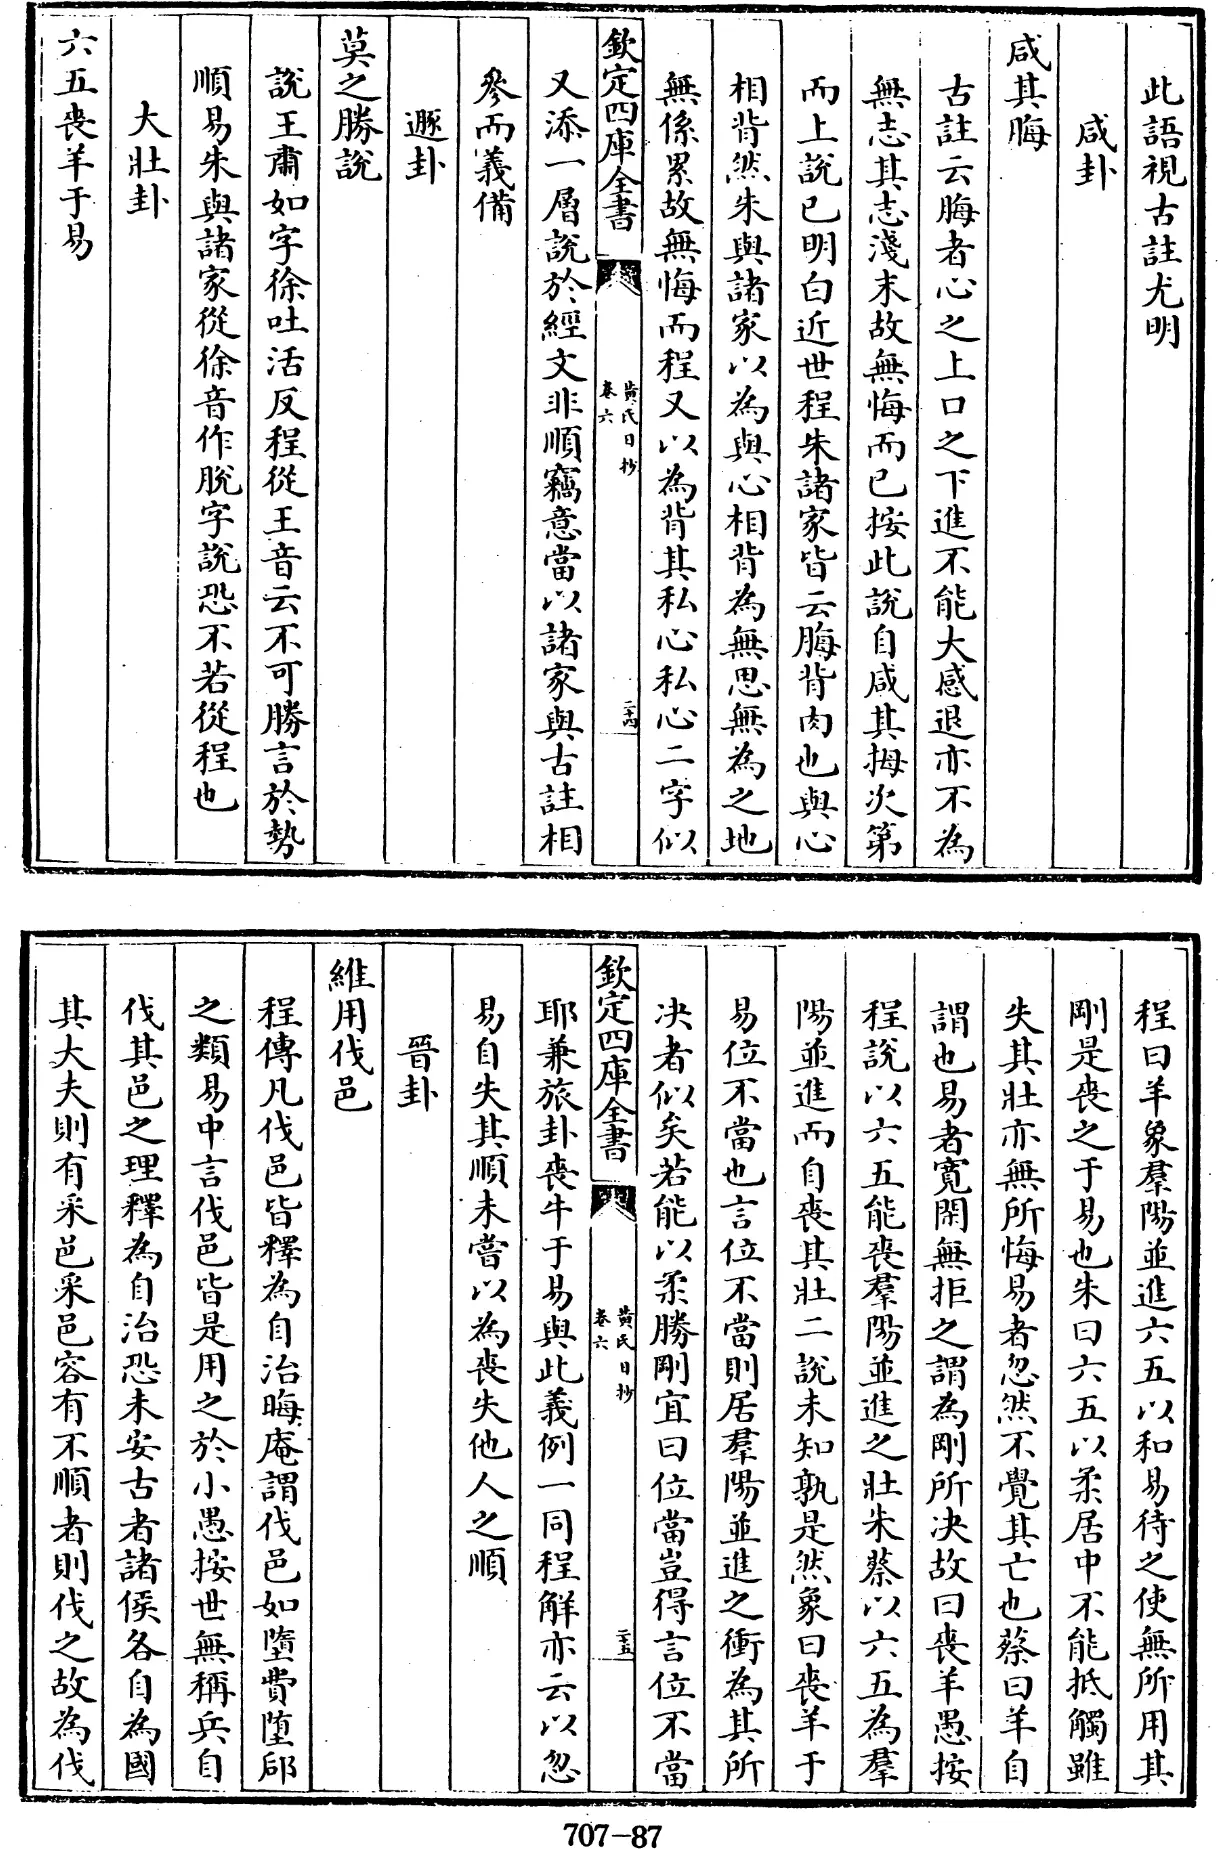 此語視古註尤明
咸卦
咸其脢
古註云脢者心之上口之下進不能大感退亦不為
無志其志淺末故無悔而已按此說自咸其拇次第
而上說已明白近世程朱諸家皆云脢背肉也與心
相背然朱與諸家以為與心相背為無思無為之地
無係累故無悔而程又以為背其私心私心二字似
欽定四庫全書
黃氏日抄
卷六
二十四
又添一層說於經文非順竊意當以諸家與古註相
參而義備
遯卦
莫之勝說
說王肅如字徐吐活反程從王音云不可勝言於勢
順易朱與諸家從徐音作脫字說恐不若從程也
大壯卦
六五喪羊于易
程曰羊象羣陽並進六五以和易待之使無所用其
剛是喪之于易也朱曰六五以柔居中不能抵觸雖
失其壯亦無所悔易者忽然不覺其亡也蔡曰羊自
謂也易者寬閑無拒之謂為剛所决故曰喪羊愚按
程說以六五能喪羣陽並進之壯朱蔡以六五為羣
陽並進而自喪其壯二說未知孰是然象曰喪羊于
易位不當也言位不當則居羣陽並進之衝為其所
决者似矣若能以柔勝剛宜曰位當豈得言位不當
欽定四庫全書
黃氏日抄
卷六
二十五
耶兼旅卦喪牛于易與此義例一同程解亦云以忽
易自失其順未嘗以為喪失他人之順
晉卦
維用伐邑
程傳凡伐邑皆釋為自治晦庵謂伐邑如墮費墮郈
之類易中言伐邑皆是用之於小愚按世無稱兵自
伐其邑之理釋為自治恐未安古者諸侯各自為國
其大夫則有采邑采邑容有不順者則伐之故為伐
707-87